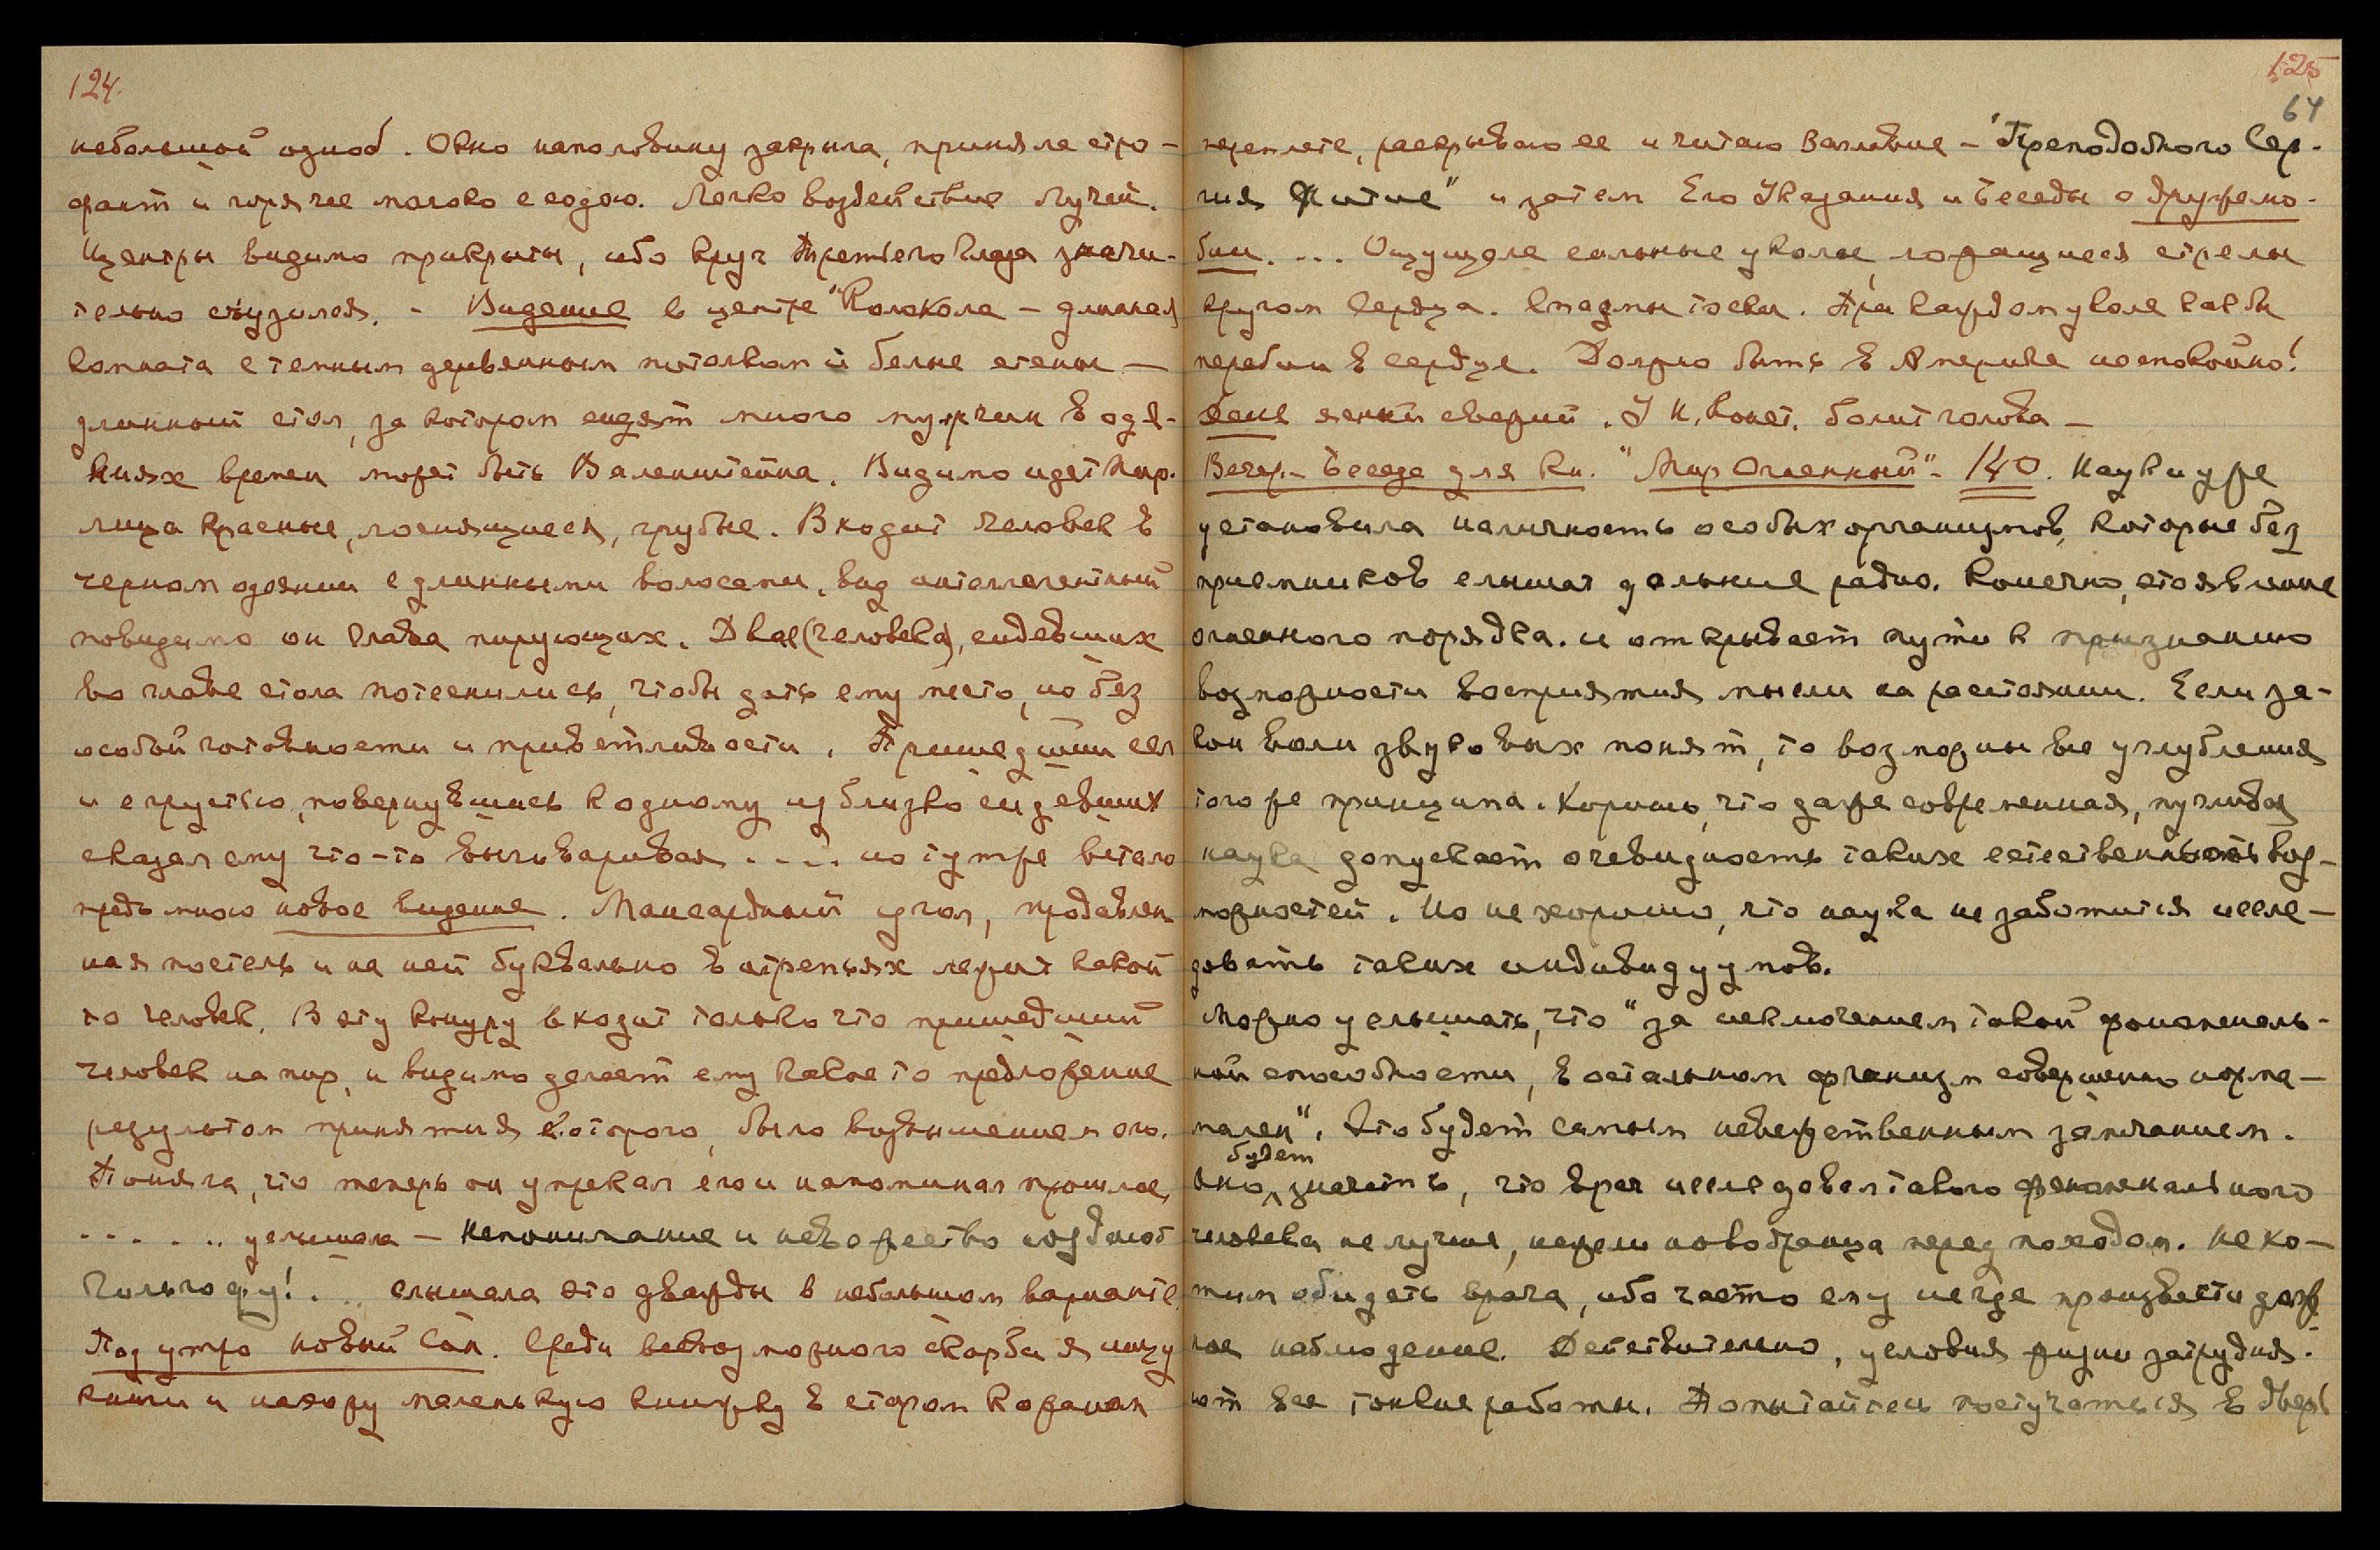 124.
небольшой озноб. Окно наполовину закрыла, приняла стро-
фант и горячее молоко с содою. Легко воздействие Лучей.
Центры видимо прикрыты, ибо круг Третьего Глаза значи-
тельно сузился. - Видение в центре "Колокола – длинная
комната с темным деревянным потолком и белые стены —
длинный стол, за котором сидят много мужчин в одя-
ниях времен может быть Валенштейна. Видимо идет пир.
лица красные, лоснящиеся, грубые. Входит человек в
черном одеянии с длинными волосами, вид интеллегентный
повидимо он глава пирующих. Двое (человека), сидевших
во главе стола потеснились, чтобы дать ему место, но без
особой готовности и приветливости. Пришедший сел
и с грустью, повернувшись к одному из близко сидевших
сказал ему что-то выговаривая .... но тут же встало
предо мною новое видение. Мансардный угол, продавлен
ная постель и на ней буквально в отрепьях лежит какой
то человек. В эту конуру входит только что пришедший
человек на пир, и видимо делает ему какое то предложение
результатом принятия которого, было возвышение его.
Поняла, что теперь он упрекал его и напоминал прошлое,
...... услышала – непонимание и невежество создают
Голгофу!... слышала это дважды в небольшом варианте.
Под утро новый сон. Среди всевозможного скарба я ищу
книги и нахожу маленькую книжку в старом кожаном
125
64
переплете, раскрываю ее и читаю заглавие – "Преподобного Сер-
гия Житие" и затем Его Указания и беседы о дружелю-
бии. ... Ощущала сильные уколы, горящиеся стрелы
кругом сердца. Спазмы тоски. При каждом уколе как бы
перебои в сердце. Должно быть в Америке неспокойно!
У Н. Конст. болит голова —
Вечер.– Беседа для кн. "Мир Огненный" – 140. Наука уже
установила наличность особых организмов, которые без
приемников слышат дальние радио. Конечно, это явление
огненного порядка. и открывает пути к признанию
возможности восприятия мысли на расстоянии. Если за-
кон волн звуковых понят, то возможны все углубления
того же принципа. Хорошо, что даже современная, пугливая
наука допускает очевидность таких естественных воз-
можностей. Но не хорошо, что наука не заботится иссле-
довать таких индивидуумов.
Можно услышать, что "за исключением такой феноменаль-
ной способности, в остальном организм совершенно норма-
лен". Это будет самым невежественным замечанием.
Оно будет значить, что врач исследовал такого феноменального
человека не лучше, нежели новобранца перед походом. Не хо-
тим обидеть врача, ибо часто ему негде произвести долж
ное наблюдение. Действительно, условия жизни затрудня-
ют все тонкие работы. Попытайтесь постучаться в дверь